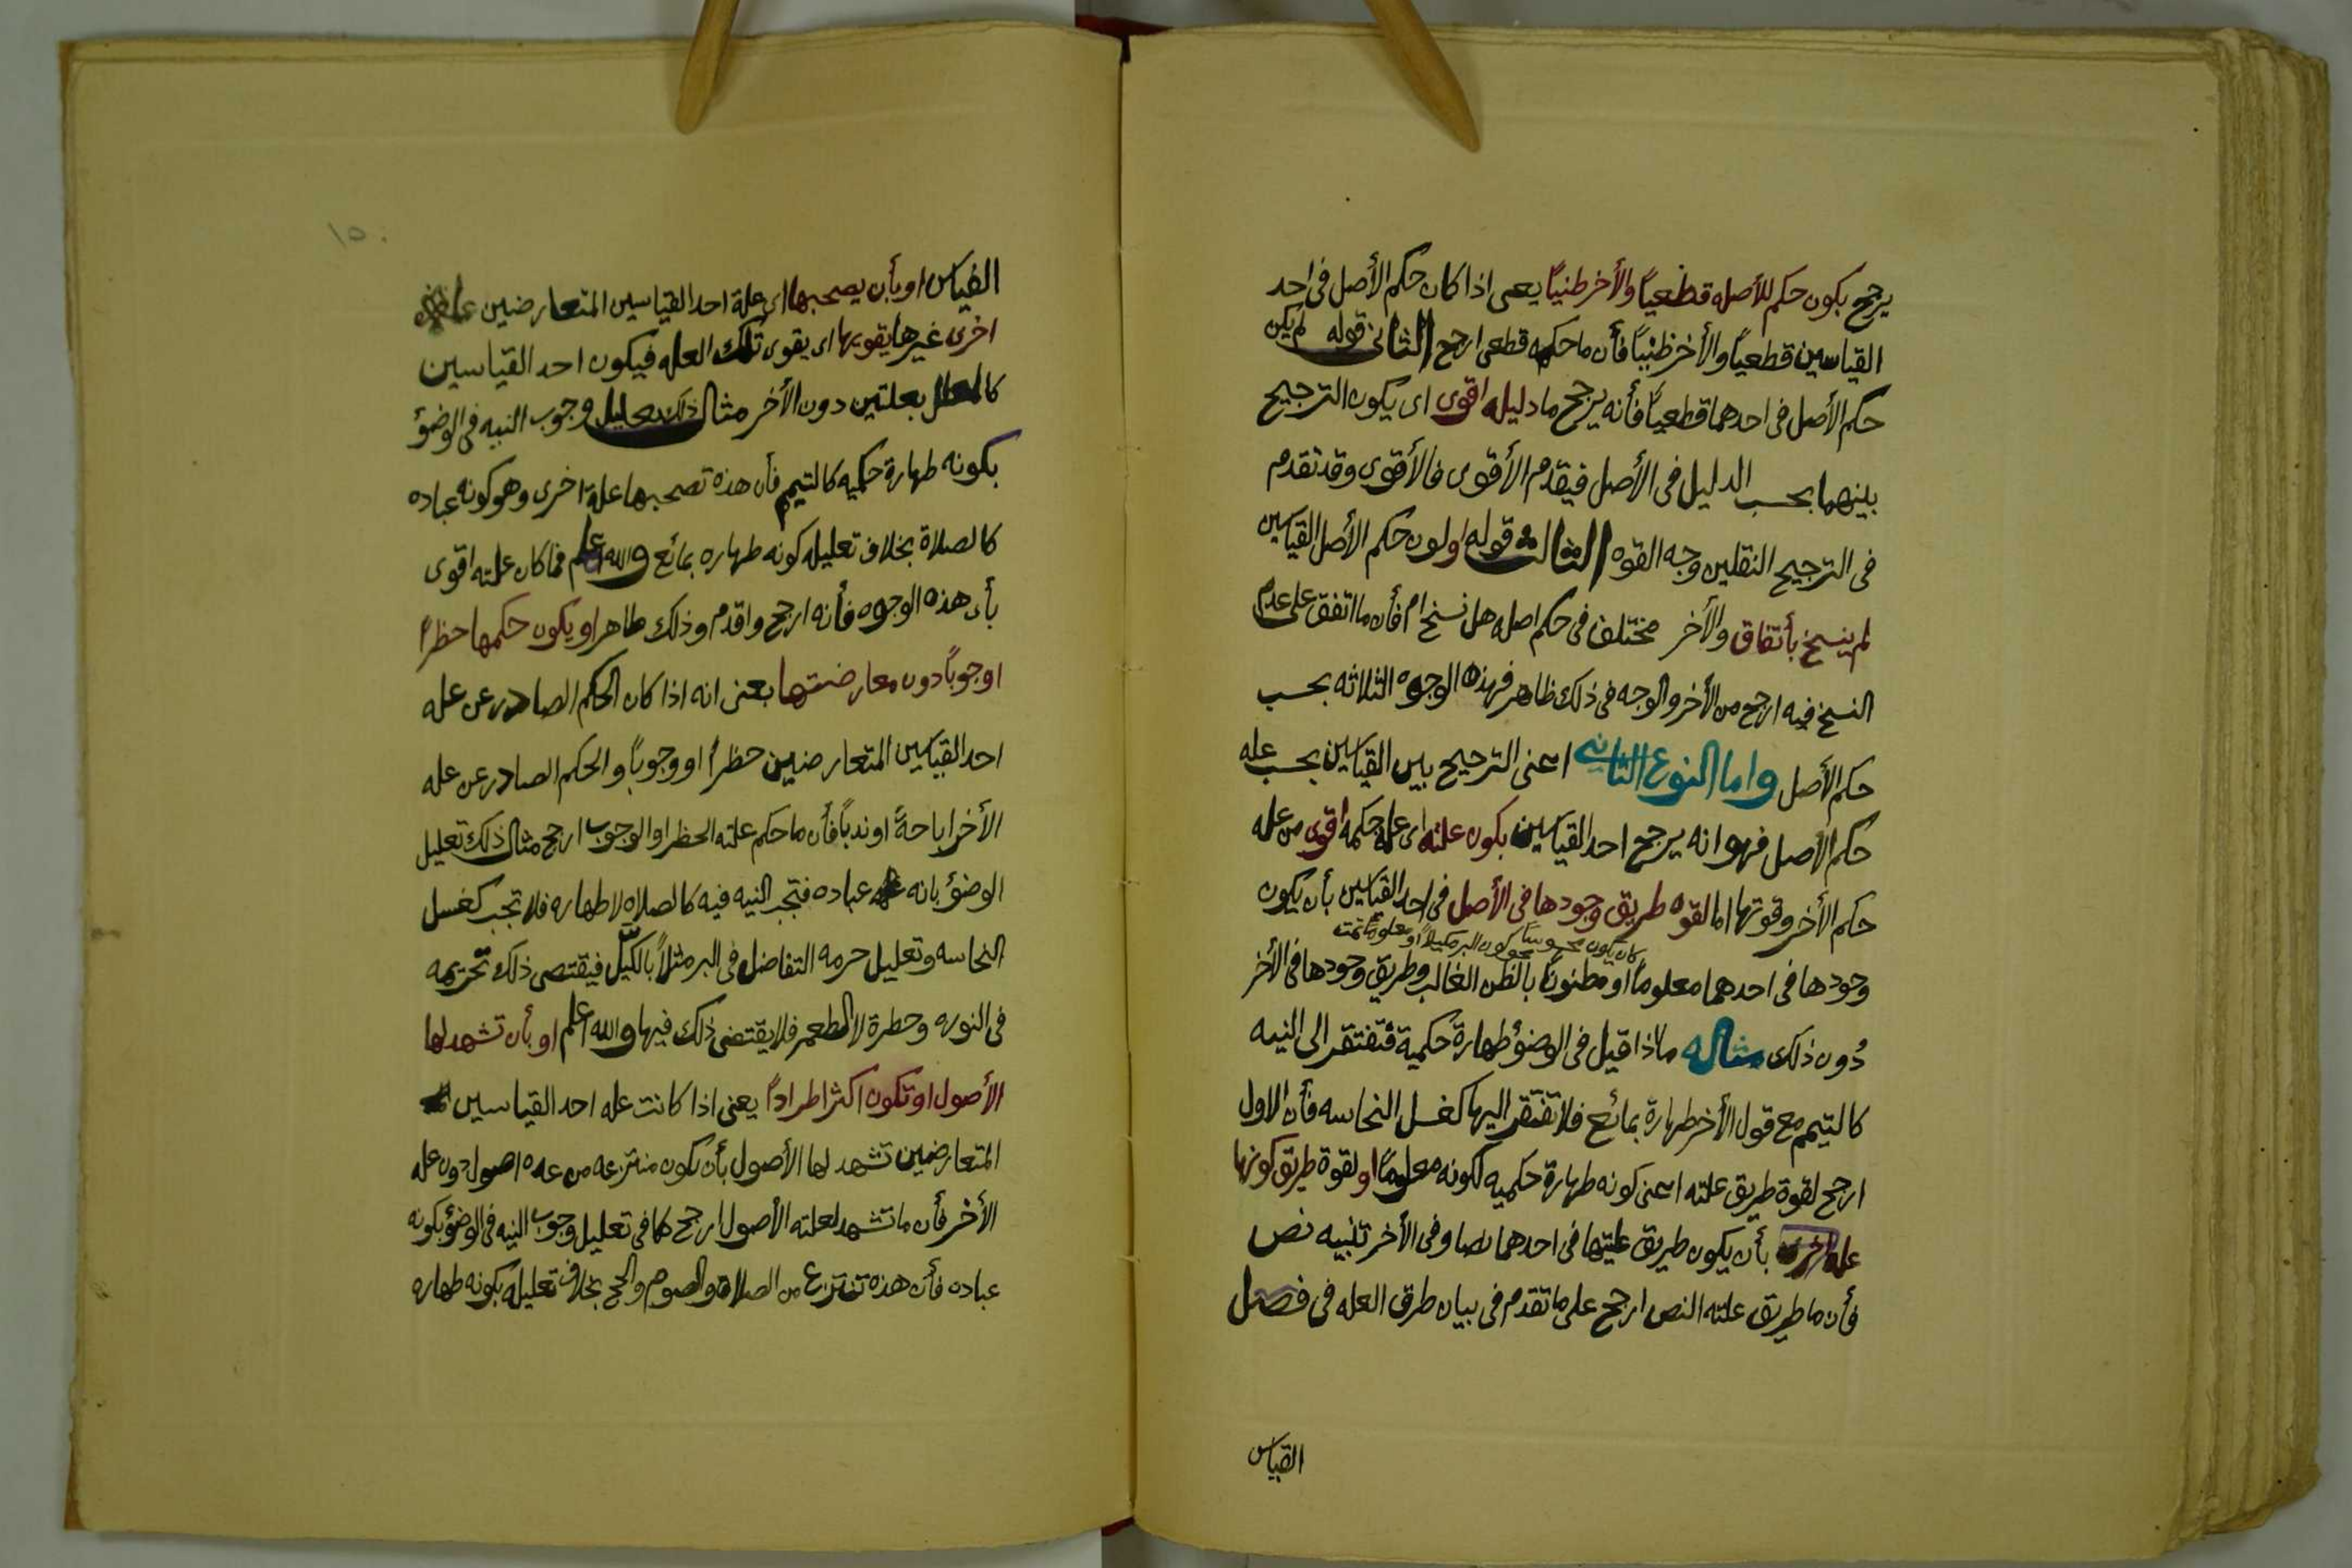 يرجح بكون حكم للأصله قطعياً والأخر ظنيًا يعى اذا كان حكم الأصل فى احد
القياسين قطعياً والأخر ظنيًا فأن ما حكمه قطعى ارجح الثانى قوله لم يكن
حكم الأصل فى احدهما قطعياً فأنه يرجح ما دليله اقوى اى يكون الترجيح
بينهما بحسب الدليل فى الأصل فيقدم الأقوى فالأقوى وقد تقدم
فى الترجيح النقلين وجه القوه الثالث قوله اولون حكم الأصل القياسين
لم ينسخ بأتفاق والأخر مختلف فى حكم اصله هل نسخ ام فأن ما اتفق على عدم
النسخ فيه ارجح من الأخر والوجه فى ذلك ظاهر فهذه الوجوه الثلاثه بحسب
حكم الأصل واما النوع الثاني اعنى الترجيح بين القياسين بحسب عله
حكم الأصل فهو انه يرجح احد القياسين بكون علته اى علة حكمه اقوى من عله
حكم الأخر وقوتها اما لقوه طريق وجودها فى الأصل فى احد القياسين بأن يكون
كان يكون محسوسًا نحو كون البر مكيلاً او معلوما تمت
وجودها فى احدهما معلوماً او مظنونًا بالظن الغالب وطريق وجودها فى الأخر
دُون ذلك مثاله ماذا قيل فى الوضؤ طهارة حكمية فتفتقر الى النيه
كالتيمم مع قول الأخر طهارة بمائع فلا تفتقر اليها كغسل النجاسه فأن الاول
ارجح لقوة طريق علته اعنى كونه طهارة حكميه لكونه معلومًا او لقوة طريق كونها
علة اخرى بأن يكون طريق عليتها فى احدهما نصا وفى الأخر تنبيه نص
فأن ما طريق علته النص ارجح على ما تقدم فى بيان طرق العله فى فصل
القياس
١٥٠
القياس او بأن يصحبها اى علة احد القياسين المتعارضين علة
اخرى غيرها يقويها اى يقوى تلك العله فيكون احد القياسين
كالمعلل بعلتين دون الأخر مثال ذلك تعليل وجوب النيه فى الوضؤ
بكونه طهارة حكميه كالتيمم فأن هذه تصحبها علة اخرى وهو كونه عباده
كالصلاة بخلاف تعليله كونه طهاره بمائع والله اعلم فما كان علته اقوى
بأى هذه الوجوه فأنه ارجح واقدم وذلك ظاهر او يكون حكمها حظراً
او جوباً دون معارضتها بعنى انه اذا كان الحكم الصادر عن عله
احد القياسين المتعارضين حظراً او وجوباً والحكم الصادر عن عله
الأخر اباحةً او ندباً فأن ما حكم علته الحظر او الوجوب ارجح مثال ذلك تعليل
الوضؤ بانه عباده فتجب النيه فيه كالصلاه لا طهاره فلا تجب كغسل
النجاسه وتعليل حرمه التفاضل فى البر مثلاً بالكيل فيقتصى ذلك تحريمه
فى النوره وحظرة لا الطعم فلا يقتضى ذلك فيها والله اعلم او بأن تشهد لها
الأصول او تكون اكثر اطراداً يعنى اذا كانت عله احد القياسين
المتعارضين تشهد لها الأصول بأن تكون منتزعه من عده اصول دون عله
الأخر فأن ما تشهد لعلته الأصول ارجح كما فى تعليل وجوب النيه فى الوضؤ بكونه
عباده فأن هذه تنتزع من الصلاة والصوم والحج بخلاف تعليله بكونه طهاره